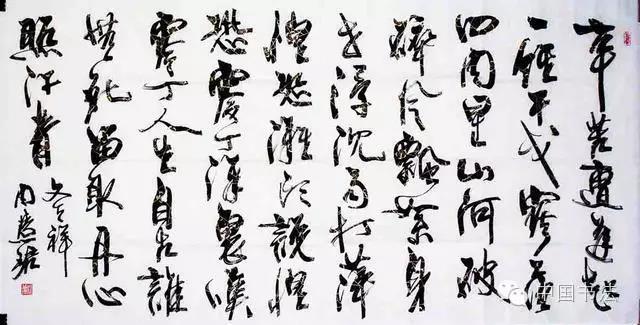 辛苦遭逢起
一經干戈寥落
四周星山河破
碎風飄絮身
世浮沉雨打萍
惶恐灘頭說惶
恐零丁洋裏嘆
零丁人生自古誰
無死留取丹心
照汗青
文天祥
周慧珺
中国书法